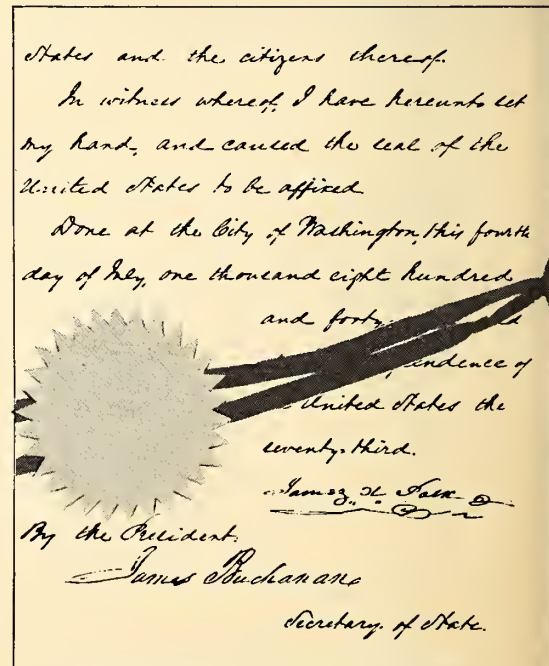 States and the citizens thereof.
In witness whereof, I have hereunto set
my hand, and caused the seal of the
United States to be affixed
Done at the City of Washington, this fourth
day of July, one thousand eight hundred
and forty
of
United States the
seventy-third.
James K. Polk
By the President:
James Buchanan
Secretary of State.